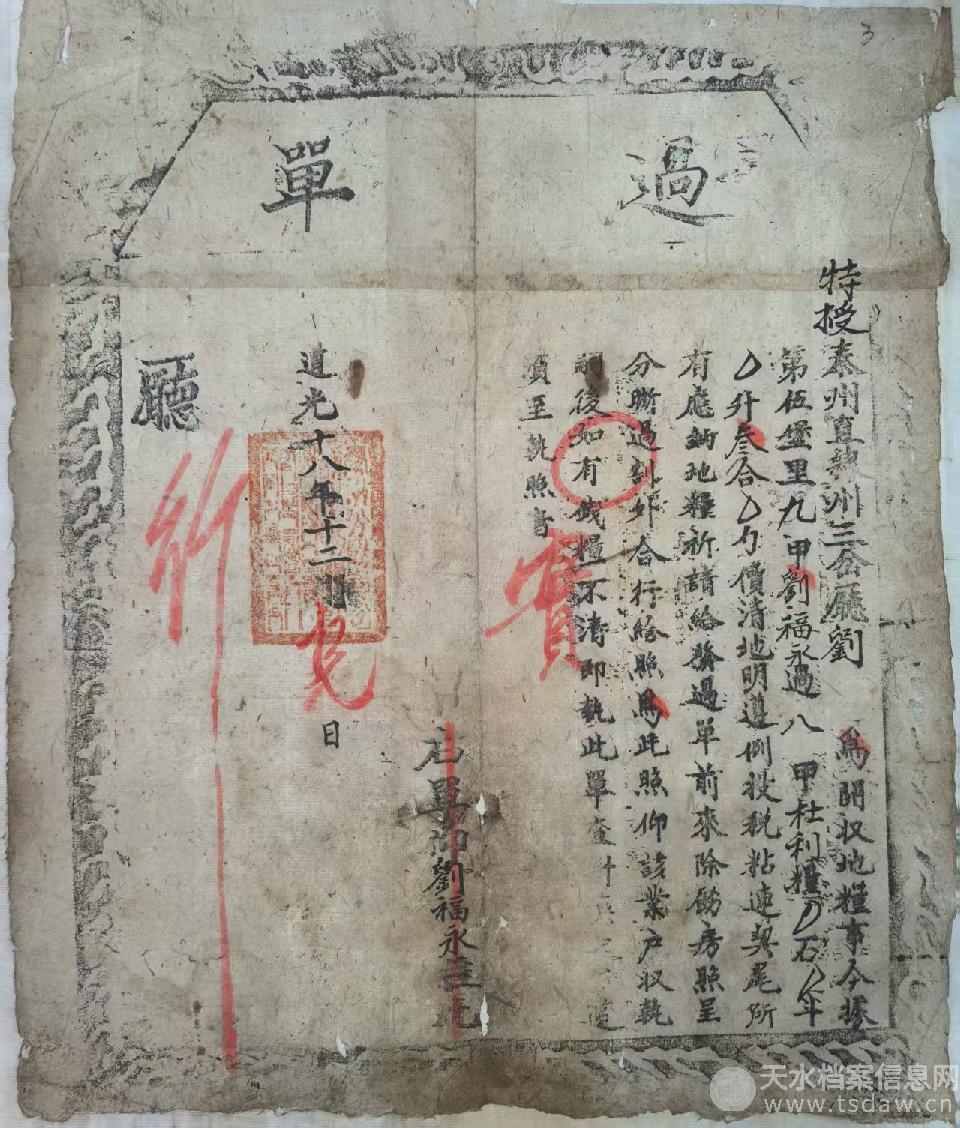 3
過單
特授秦州直隸州三岔廳劉 為開收地糧事今據
第伍堡里九甲劉福永過八甲杜利糧 石 斗
升叁合 勺價清地明遵例投稅粘連契尾所
有應納地糧祈請給發過單前來除飭房照呈
分晰過割外合行給照為此照仰該業户收執
嗣後如有錢糧不清即執此單查對 之 遺
須至執照者
實
右單給劉福永
道光十八年十二月 日
廳
行
天水档案信息网
www.tsdaw.cn